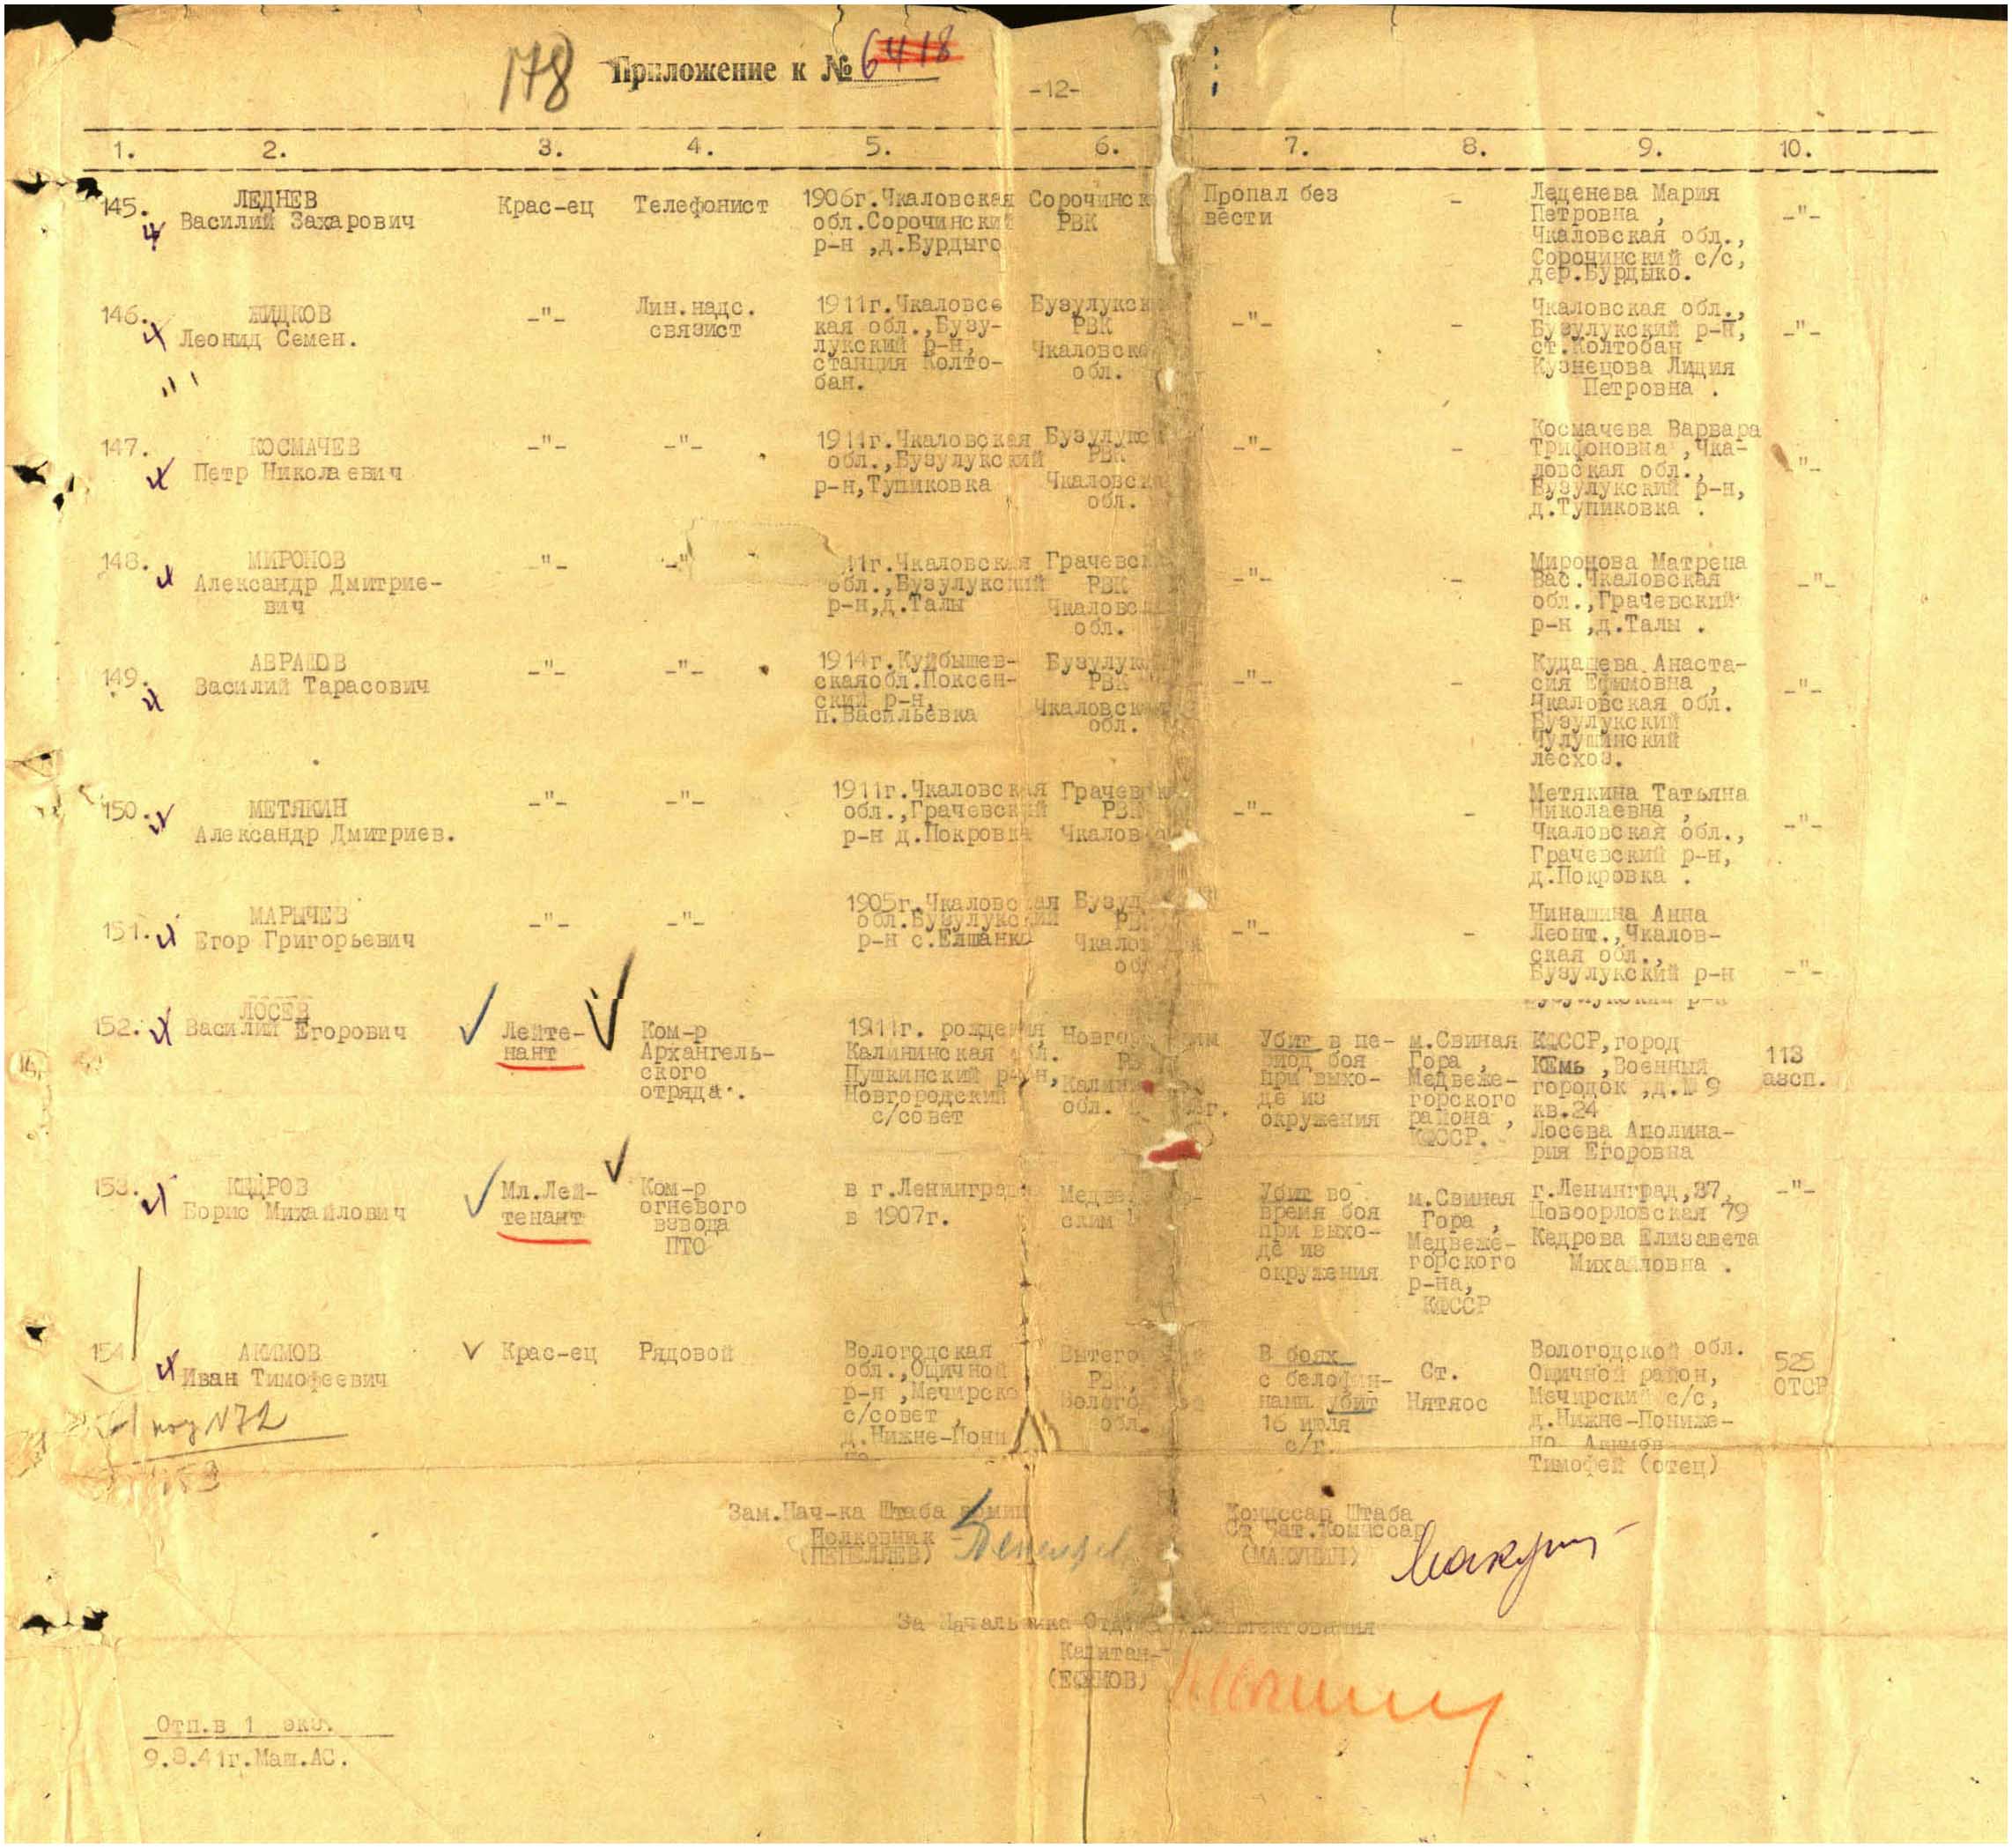 178 Приложение к № 6418
-12-
1. 2. 3. 4. 5. 6. 7. 8. 9. 10.
145. ЛЕДНЕВ
Василий Захарович
Крас-ец
Телефонист
1906г.Чкаловская
обл.Сорочинский
р-н ,д.Бурдыго
Сорочинск
РВК
Пропал без
вести
-
Леденева Мария
Петровна ,
Чкаловская обл.,
Сорочинский с/с,
дер.Бурдыко.
-"-
146. ЖИДКОВ
Леонид Семен.
-"-
Лин.надс.
связист
1911г.Чкаловсс
кая обл.,Бузу-
лукский р-н,
станция Колто-
бан.
Бузулукск
РВК
Чкаловско
обл.
-"-
-
Чкаловская обл.,
Бузулукский р-н,
ст.Колтобан
Кузнецова Лидия
Петровна .
-"-
147. КОСМАЧЕВ
Петр Николаевич
-"-
-"-
1911г.Чкаловская
обл.,Бузулукский
р-н,Тупиковка
Бузулукс
РВК
Чкаловск
обл.
-"-
-
Космачева Варвара
Трифоновна ,Чка-
ловская обл.,
Бузулукский р-н,
д.Тупиковка .
-"-
148. МИРОНОВ
Александр Дмитрие-
вич
-"-
-"
11г.Чкаловская
обл.,Бузулукский
р-н,д.Талы
Грачевс
РВК
Чкаловс
обл.
-"-
-
Миронова Матрена
Вас.Чкаловская
обл.,Грачевский
р-н ,д.Талы .
-"-
149. АВРАМОВ
Василий Тарасович
-"-
-"-
1914г.Куйбышев-
скаяобл.Поксен-
ский р-н,
п.Васильевка
Бузулук
РВК
Чкаловск
обл.
-"-
-
Кудашева Анаста-
сия Ефимовна ,
Чкаловская обл.
Бузулукский
Чулушинский
лесхоз.
-"-
150. МЕТЯКИН
Александр Дмитриев.
-"-
-"-
1911г.Чкаловская
обл.,Грачевский
р-н д.Покровка
Грачев
РВК
Чкалов
-"-
-
Метякина Татьяна
Николаевна ,
Чкаловская обл.,
Грачевский р-н,
д.Покровка .
-"-
151. МАРЫЧЕВ
Егор Григорьевич
-"-
-"-
1905г.Чкаловская
обл.Бузулукский
р-н с.Елшанка
Бузул
РВ
Чкалов
об
-"-
-
Нинашина Анна
Леонт.,Чкалов-
ская обл.,
Бузулукский р-н
-"-
152. ЛОСЕВ
Василий Егорович
Лейте-
нант
Ком-р
Архангель-
ского
отряда.
1911г. рождения,
Калининская обл.
Пушкинский р-он,
Новгородский
с/совет
Новгор
Калини
обл.
Убит в пе-
риод боя
при выхо-
де из
окружения
м.Свиная
Гора ,
Медвеже-
горского
района ,
КФССР.
КФССР,город
КЕмь ,Военный
городок ,д.№ 9
кв.24
Лосева Аполина-
рия Егоровна
113
азсп.
153. КЕДРОВ
Борис Михайлович
Мл.Лей-
тенант
Ком-р
огневого
взвода
ПТО
в г.Ленинграде
в 1907г.
Медве
ским
Убит во
время боя
при выхо-
де из
окружения
м.Свиная
Гора ,
Медвеже-
горского
р-на,
КФССР
г.Ленинград,37,
Новоорловская 79
Кедрова Елизавета
Михайловна .
-"-
154 АКИМОВ
Иван Тимофеевич
Крас-ец
Рядовой
Вологодская
обл.,Ошичной
р-н ,Мечирско
с/совет ,
д.Нижне-Пони
Вытего
РВК,
Волого
обл.
В боях
с белофин-
нами убит
16 июля
с/г.
Ст.
Нятяос
Вологодской обл.
Ошичной район,
Мечирский с/с,
д.Нижне-Пониже-
но Акимов
Тимофей (отец)
525
ОТСР
153
Зам.Нач-ка Штаба Армии
Полковник
(ПЕПЕЛЯЕВ)
Комиссар Штаба
Ст Бат.Комиссар
(МАКУНИН)
За Начальника Отдела Комплектования
Капитан-
(ЕФИМОВ)
Отп.в 1 экз.
9.8.41г.Маш.АС.